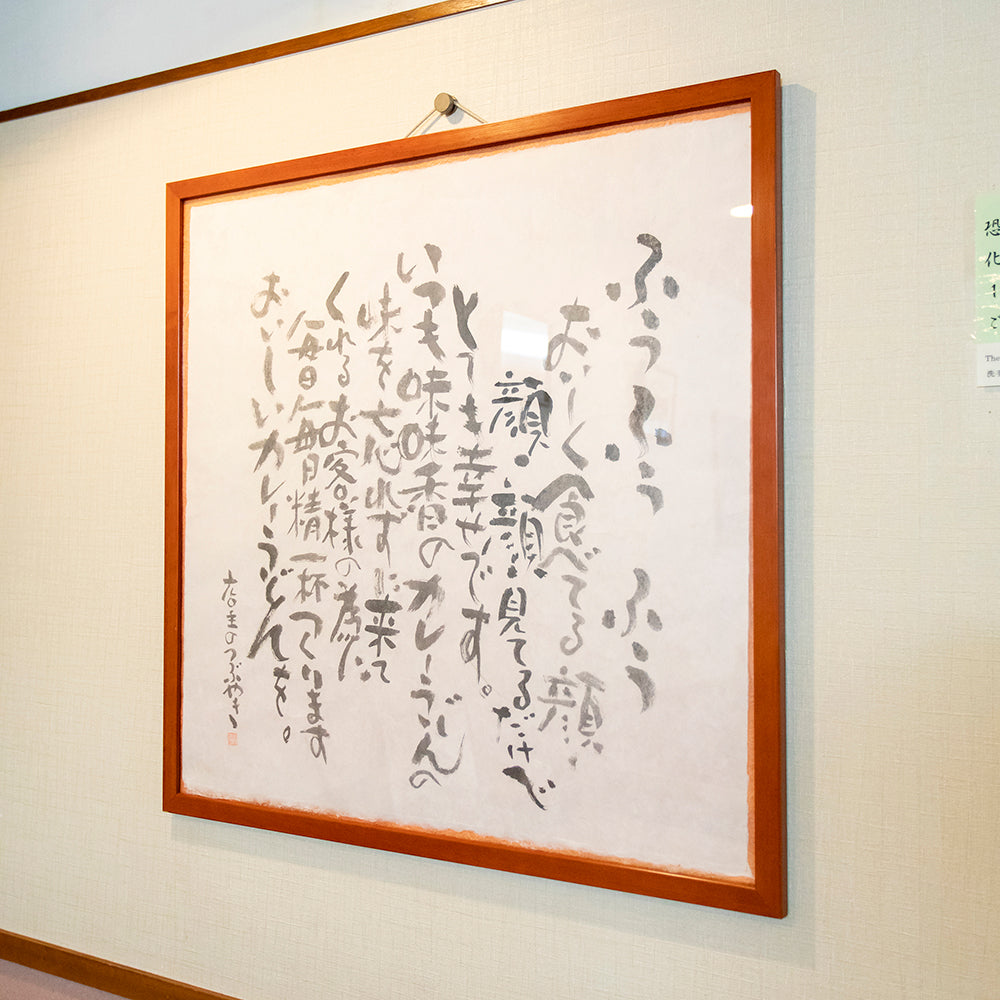 ふぅふぅ ふぅ
おいしく食べてる顔、
顔・顔・見てるだけで
とても幸せです。
いつも味も香のカレーうどんの
味を忘れずに来て
くれるお客様の為に
毎日毎日精一杯つくります
おいしいカレーうどんを。
店主のつぶやき、
恐
化
ご
The
洗